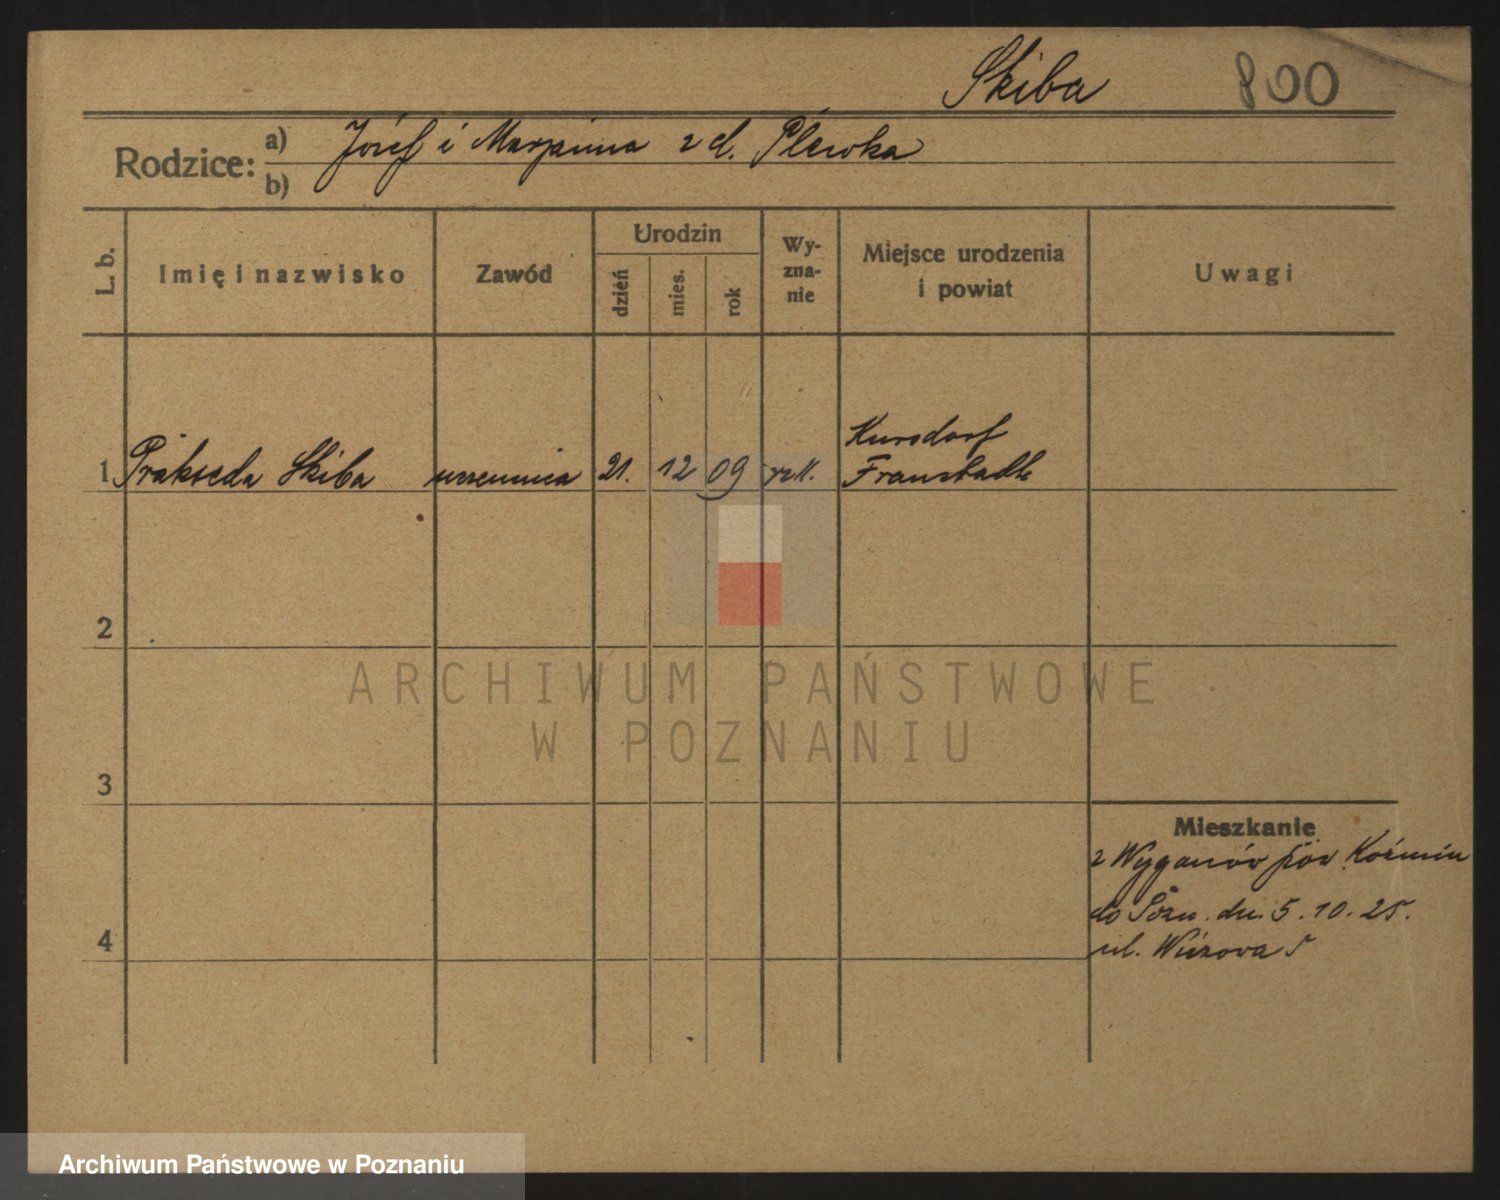 Skiba 800
Rodzice: a) Józef i Marjanna z d. Plewka
b)
L. b. Imię i nazwisko Zawód Urodzin dzień mies. rok Wy-zna-nie Miejsce urodzenia i powiat Uwagi
Kursdorf
1. Prakseda Skiba uczennica 21. 12 09 rzk. Fraustadt
2
ARCHIWUM PAŃSTWOWE
W POZNANIU
3
Mieszkanie
z Wyganów pow. Koźmin
do Pozn. dn. 5.10.25.
4
ul. Wieżowa 5
Archiwum Państwowe w Poznaniu